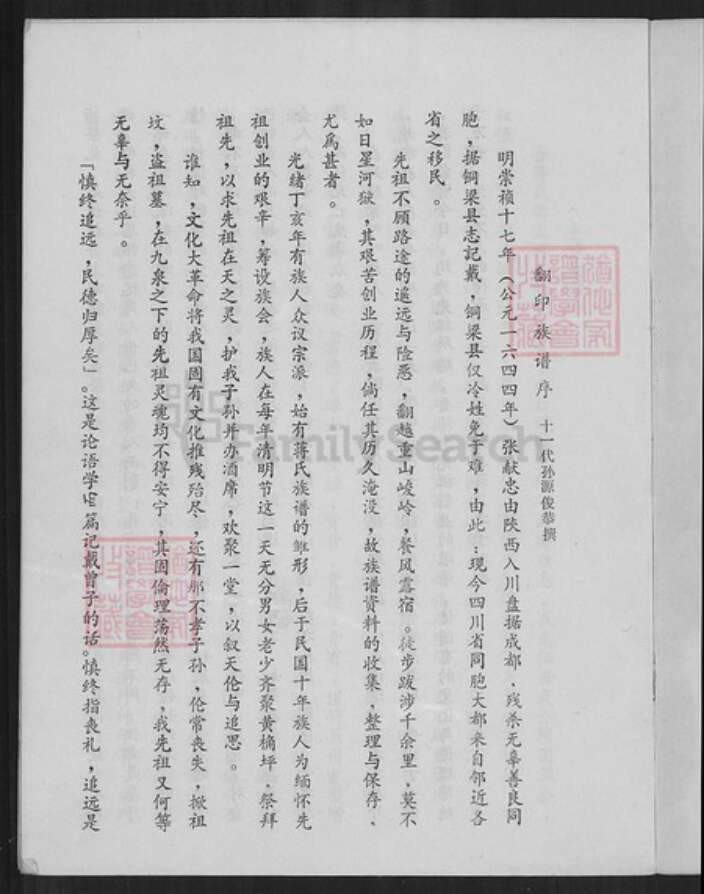 翻印族谱序 十一代孙源俊恭撰
明崇祯十七年(公元一六四四年)张献忠由陕西入川盘据成都、残杀无辜善良同
胞,据铜梁县志记载,铜梁县仅冷姓免于难,由此:现今四川省同胞大都来自邻近各
省之移民。
先祖不顾路途的遥远与险恶,翻越重山峻岭,餐风露宿。徒步跋涉千余里,莫不
如日星河狱,其艰苦创业历程,倘任其历久淹没,故族谱资料的收集,整理与保存、
尤为甚者。
光绪丁亥年有族人众议宗派,始有蒋氏族谱的雏形,后于民国十年族人为缅怀先
祖创业的艰辛,筹设族会,族人在每年清明节这一天无分男女老少齐聚黄桷坪.祭拜
祖先,以求先祖在天之灵,护我子孙并办酒席,欢聚一堂,以叙天伦与追思。
谁知,文化大革命将我国固有文化推残殆尽,还有那不孝子孙,伦常丧失,掀祖
坟,盗祖墓,在九泉之下的先祖灵魂均不得安宁,其固倫理荡然无存,我先祖又何等
无辜与无奈乎。
「慎终追远,民德归厚矣」。这是论语学而篇记戴曾子的话。慎终指丧礼,追远是
FamilySearch